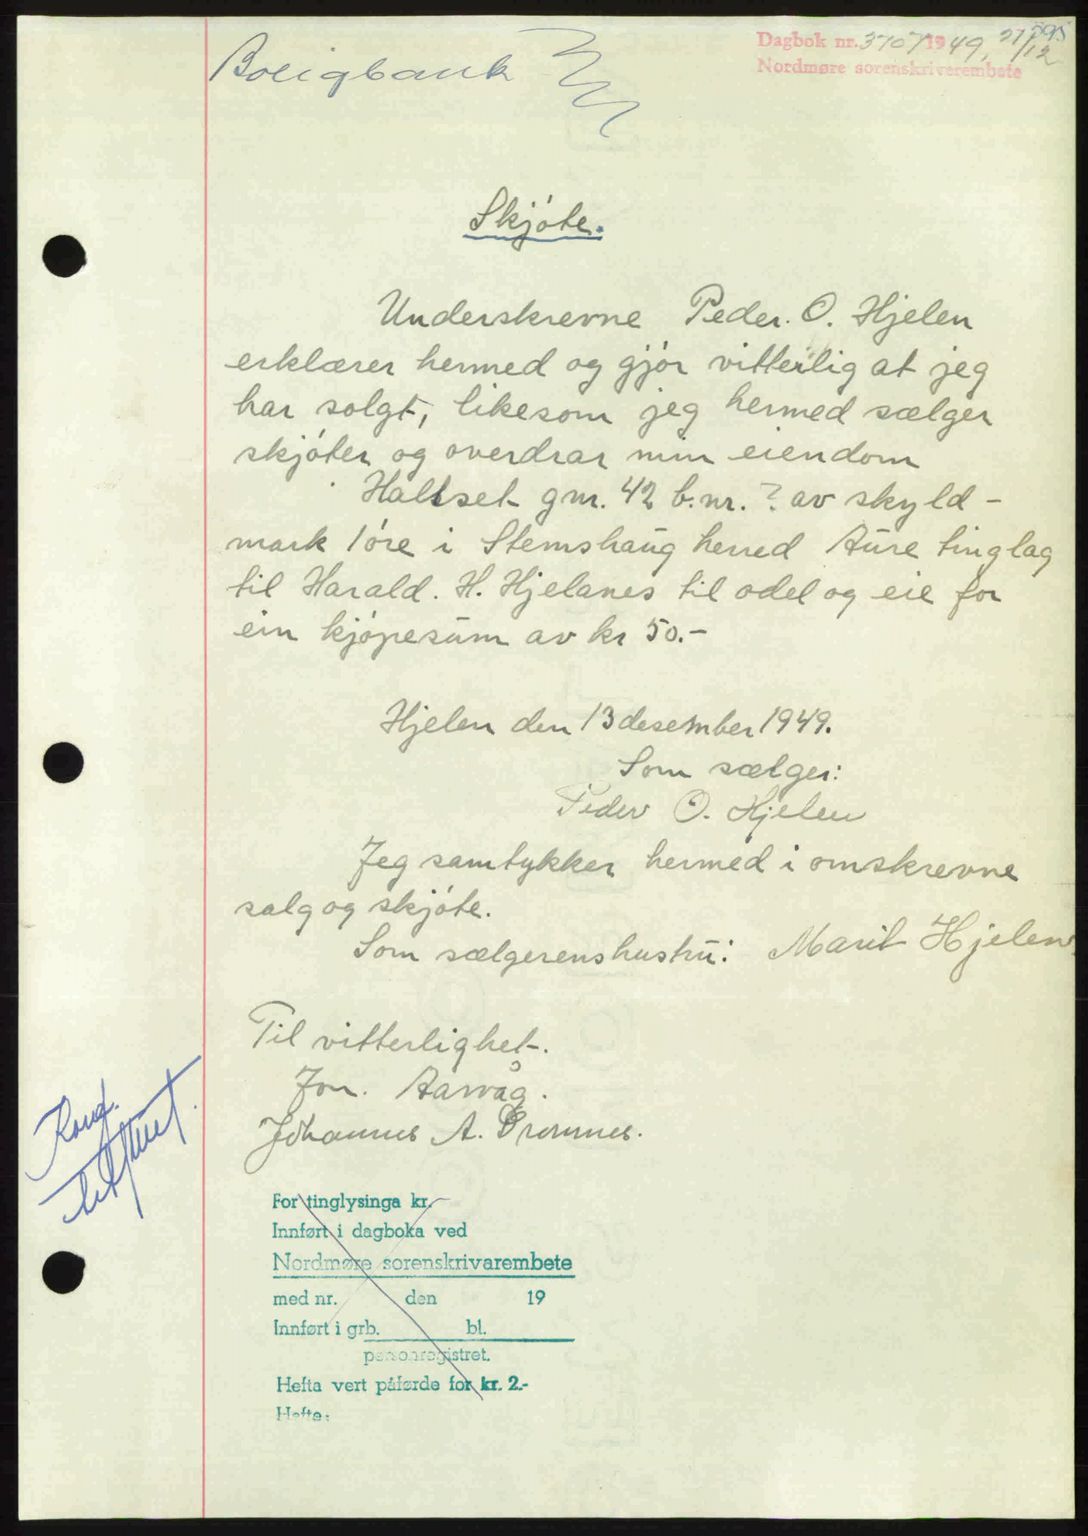 Boligbank
Dagbok nr. 3707 1949, 27/12
Nordmøre sorenskriverembete
Skjóte.
Underskrevne Peder. O. Hjelen
erklærer hermed og gjór vitterlig at jeg
har solgt, likesom jeg hermed sælger
skjóter og overdrar min eiendom
Haltset gnr. 42 b.nr. ? av skyld-
mark 1 óre i Stemshaug herred Aure tinglag
til Harald. H. Hjelanes til odel og eie for
ein kjópesum av kr 50.-
Hjelen den 13 desember 1949.
Som sælger:
Peder O. Hjelen
Jeg samtykker hermed i omskrevne
salg og skjóte.
Som sælgerens hustru: Marit Hjelen
Til vitterlighet.
Jon. Aarvåg.
Johannes A.
Konf.
For tinglysinga kr.
Innført i dagboka ved
Nordmøre sorenskrivarembete
med nr. den 19
Innført i grb. bl.
personregistret.
Hefta vert påførde for kr. 2.-
Hefte: